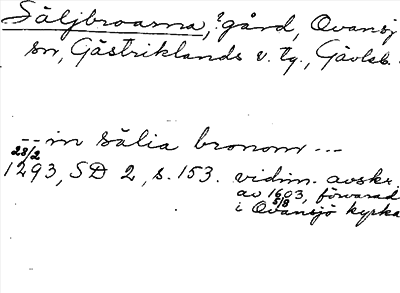 Säljbroarna, ?gård, Ovansj
sn, Gästriklands v. tg., Gävleb.
-- in sälia bronom ---
28/2
1293, SD 2, s. 153. vidim. avskr.
av 1603, förvarad
8/8
i Ovansjö kyrka